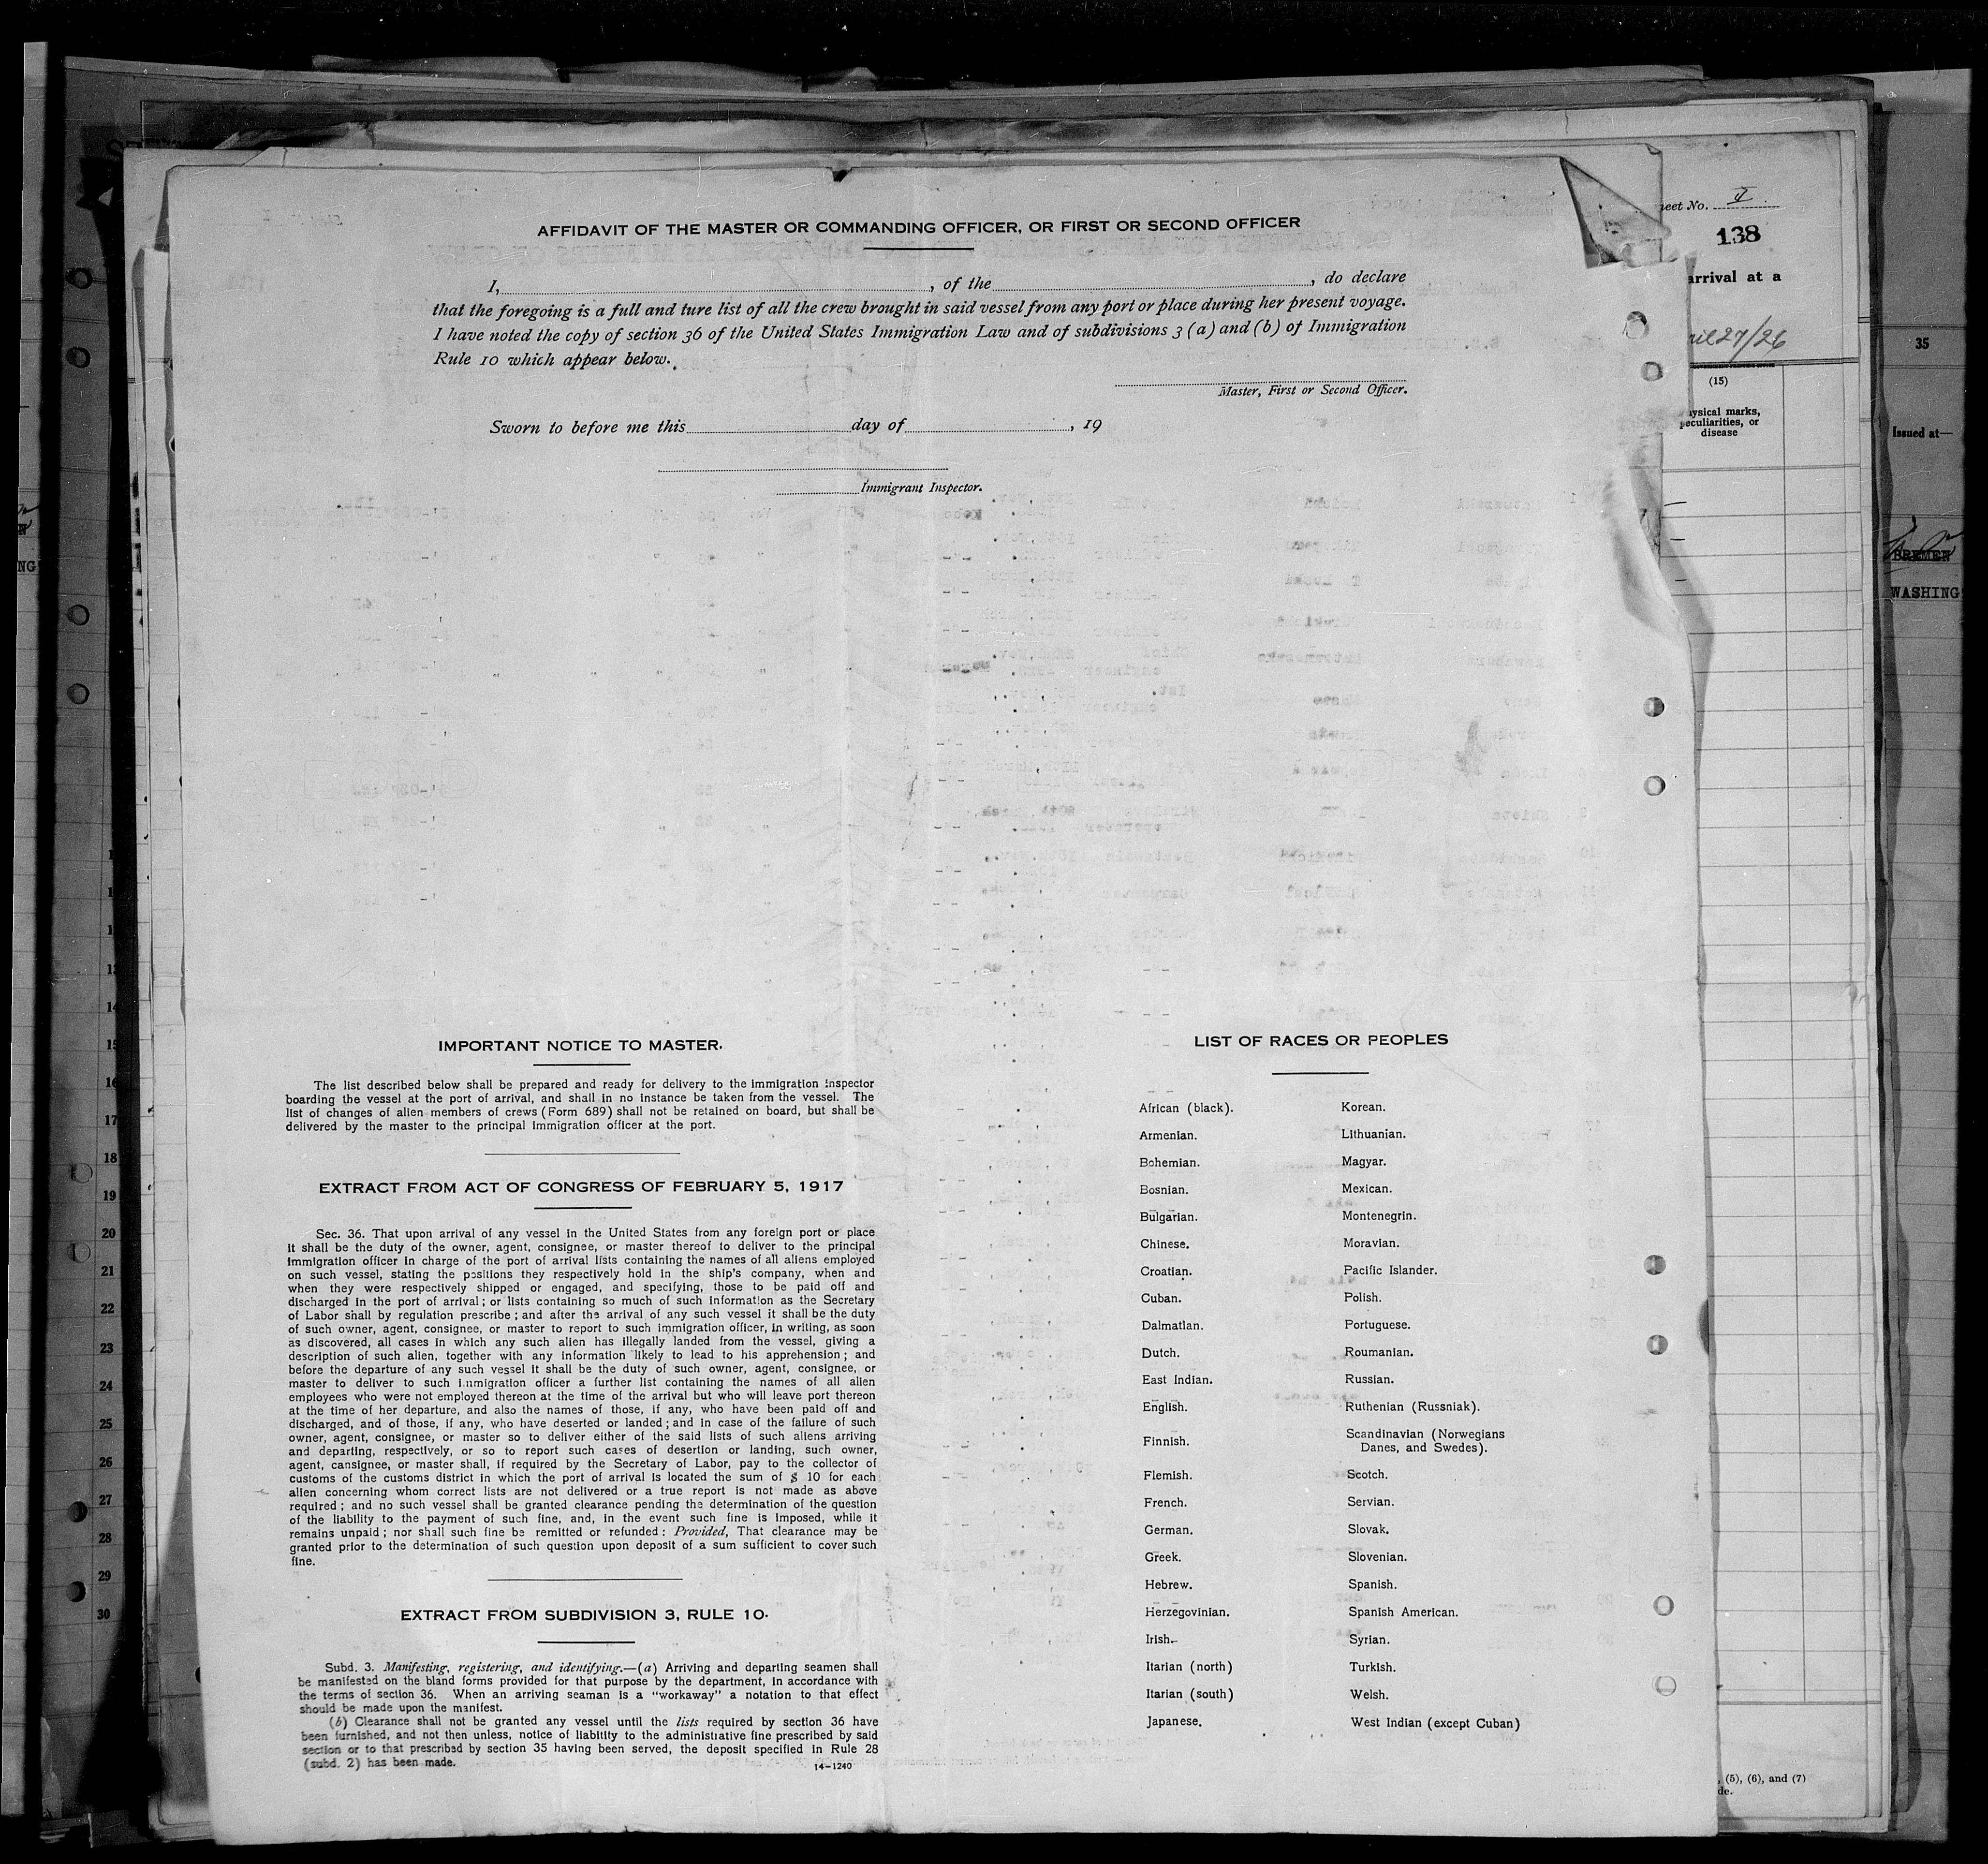 AFFIDAVIT OF THE MASTER OR COMMANDING OFFICER, OR FIRST OR SECOND OFFICER
I, , of the , do declare
that the foregoing is a full and ture list of all the crew brought in said vessel from any port or place during her present voyage.
I have noted the copy of section 36 of the United States Immigration Law and of subdivisions 3 (a) and (b) of Immigration
Rule 10 which appear below.
Master, First or Second Officer.
Sworn to before me this day of , 19
Immigrant Inspector.
IMPORTANT NOTICE TO MASTER.
The list described below shall be prepared and ready for delivery to the immigration inspector
boarding the vessel at the port of arrival, and shall in no instance be taken from the vessel. The
list of changes of alien members of crews (Form 689) shall not be retained on board, but shall be
delivered by the master to the principal immigration officer at the port.
EXTRACT FROM ACT OF CONGRESS OF FEBRUARY 5, 1917
Sec. 36. That upon arrival of any vessel in the United States from any foreign port or place
it shall be the duty of the owner, agent, consignee, or master thereof to deliver to the principal
immigration officer in charge of the port of arrival lists containing the names of all aliens employed
on such vessel, stating the positions they respectively hold in the ship's company, when and
when they were respectively shipped or engaged, and specifying, those to be paid off and
discharged in the port of arrival; or lists containing so much of such information as the Secretary
of Labor shall by regulation prescribe; and after the arrival of any such vessel it shall be the duty
of such owner, agent, consignee, or master to report to such immigration officer, in writing, as soon
as discovered, all cases in which any such alien has illegally landed from the vessel, giving a
description of such alien, together with any information likely to lead to his apprehension; and
before the departure of any such vessel it shall be the duty of such owner, agent, consignee, or
master to deliver to such immigration officer a further list containing the names of all alien
employees who were not employed thereon at the time of the arrival but who will leave port thereon
at the time of her departure, and also the names of those, if any, who have been paid off and
discharged, and of those, if any, who have deserted or landed; and in case of the failure of such
owner, agent, consignee, or master so to deliver either of the said lists of such aliens arriving
and departing, respectively, or so to report such cases of desertion or landing, such owner,
agent, cansignee, or master shall, if required by the Secretary of Labor, pay to the collector of
customs of the customs district in which the port of arrival is located the sum of $ 10 for each
alien concerning whom correct lists are not delivered or a true report is not made as above
required; and no such vessel shall be granted clearance pending the determination of the question
of the liability to the payment of such fine, and, in the event such fine is imposed, while it
remains unpaid; nor shall such fine be remitted or refunded: Provided, That clearance may be
granted prior to the determination of such question upon deposit of a sum sufficient to cover such
fine.
EXTRACT FROM SUBDIVISION 3, RULE 10.
Subd. 3. Manifesting, registering, and identifying.—(a) Arriving and departing seamen shall
be manifested on the bland forms provided for that purpose by the department, in accordance with
the terms of section 36. When an arriving seaman is a "workaway" a notation to that effect
should be made upon the manifest.
(b) Clearance shall not be granted any vessel until the lists required by section 36 have
been furnished, and not then unless, notice of liability to the administrative fine prescribed by said
section or to that prescribed by section 35 having been served, the deposit specified in Rule 28
(subd. 2) has been made.
14-1240
LIST OF RACES OR PEOPLES
African (black). Korean.
Armenian. Lithuanian.
Bohemian. Magyar.
Bosnian. Mexican.
Bulgarian. Montenegrin.
Chinese. Moravian.
Croatian. Pacific Islander.
Cuban. Polish.
Dalmatian. Portuguese.
Dutch. Roumanian.
East Indian. Russian.
English. Ruthenian (Russniak).
Finnish. Scandinavian (Norwegians
Danes, and Swedes).
Flemish. Scotch.
French. Servian.
German. Slovak.
Greek. Slovenian.
Hebrew. Spanish.
Herzegovinian. Spanish American.
Irish. Syrian.
Itarian (north) Turkish.
Itarian (south) Welsh.
Japanese. West Indian (except Cuban)
eet No.
138
arrival at a
ril 27/26
(15)
ysical marks,
peculiarities, or
disease
, (5), (6), and (7)
de.
35
Issued at—
BREMEN
WASHING
NG
13
14
15
16
17
18
19
20
21
22
23
24
25
26
27
28
29
30